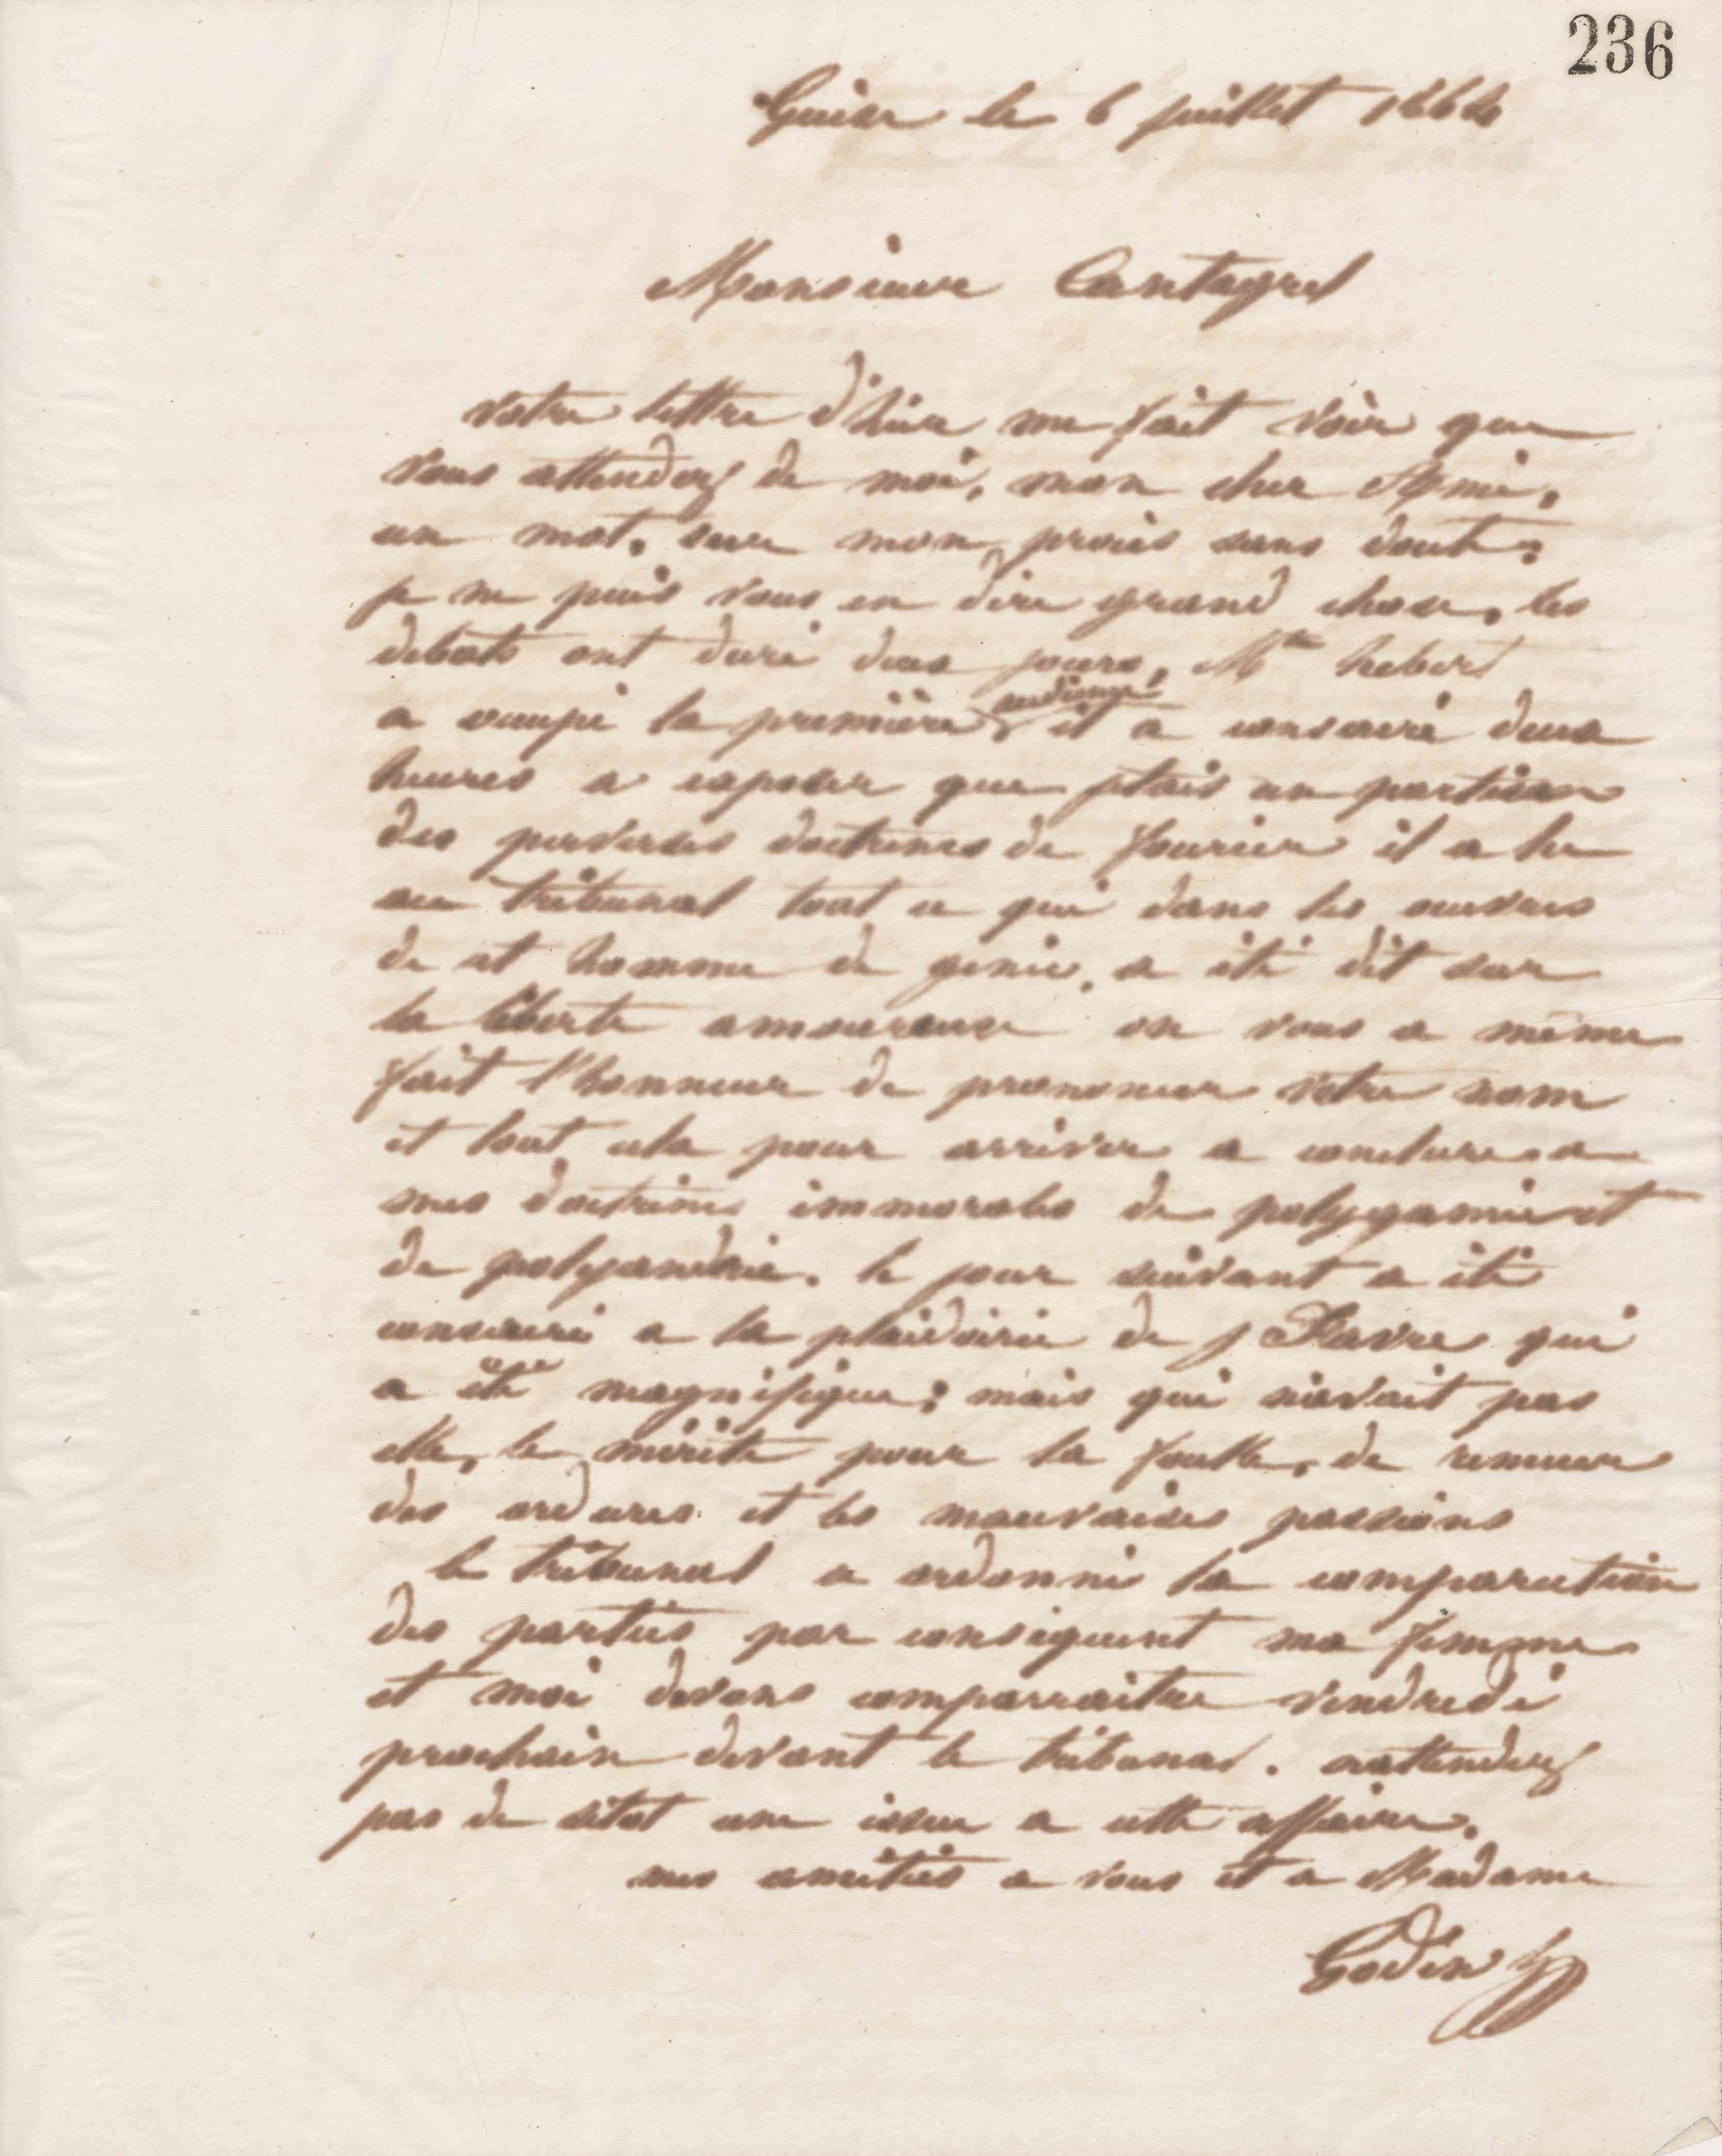 236
Guise le 6 juillet 1864
Monsieur Cantagrel
votre lettre d'hier me fait voir que
vous attendez de moi, mon cher Ami,
un mot, sur mon procès sans doute;
je ne puis vous en dire grand chose, les
debats ont duré deux jours, Me hebert
a occupé la première audience, il a consacré deux
heures a exposer que j'etais un partisan
des perverses doctrines de fourier il a lu
au tribunal tout ce qui dans les oeuvres
de cet homme de genie, a été dit sur
la liberté amoureuse on vous a même
fait l'honneur de prononcer votre nom
et tout cela pour arriver a conclure a
mes doctrines immorales de polygamie et
de polyandrie. le jour suivant a été
consacré a la plaidoirie de j Favre qui
a été magnifique; mais qui n'avait pas
elle, le mérite pour la foulle, de remuer
des ordures et les mauvaises passions
le tribunal a ordonné la comparution
des parties par consequent ma femme
et moi devons comparraitre vendredi
prochain devant le tribunal. n'attendez
pas de sitot une issue a cette affaire.
mes amitiés a vous et a Madame
Godin